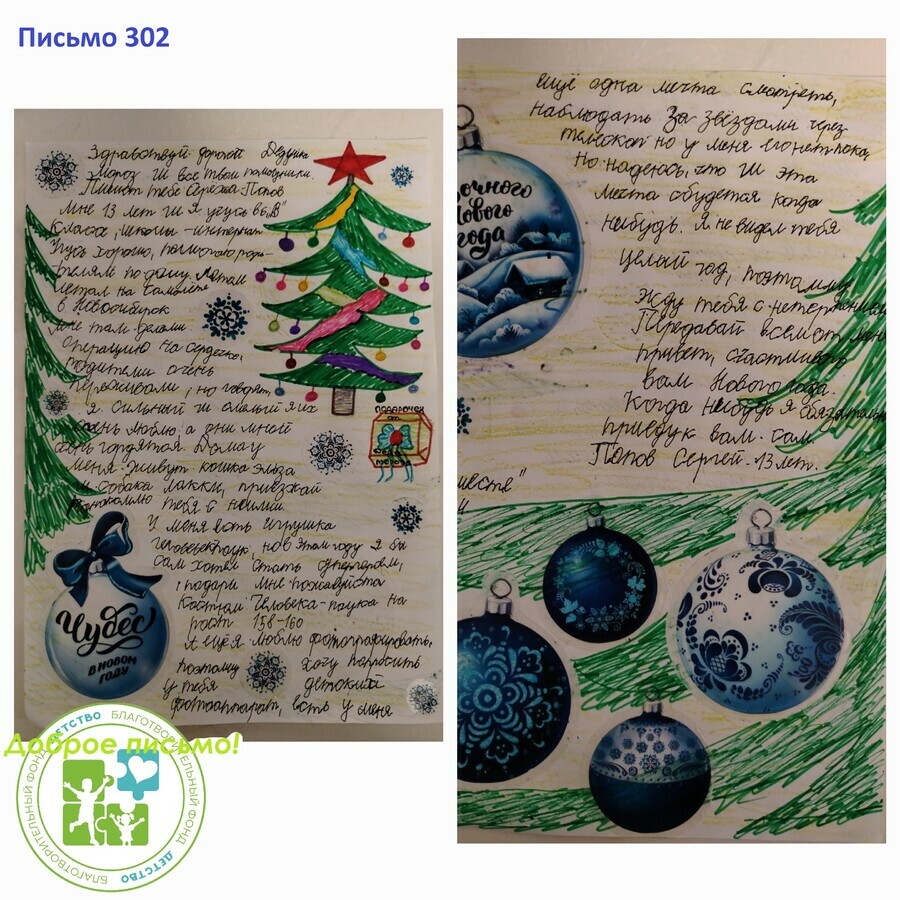 Письмо 302
Здравствуй дорогой Дедушка
Мороз и все твои помощники.
Пишет тебе Серёжа Попов
мне 13 лет и я учусь в 6 „В"
классе, школы-интернат
Учусь хорошо, помогаю роди-
телям по дому. Летом
летал на самолёте
в Новосибирск
мне там делали
операцию на сердечке,
родители очень
переживали, но говорят,
я сильный и смелый я их
очень люблю, а они мной
гордятся Дома у
меня живут кошка Эльза
и собака Лакки, приезжай
познакомлю тебя с ними.
У меня есть игрушка
человек паук, но в этом году я бы
сам хотел стать супергероем,
, подари мне пожалуйста
костюм Человека-паука на
рост 158-160
А ещё я люблю фотографировать,
поэтому хочу попросить
у тебя детский
фотоаппарат, есть у меня
подарочек
от
Деда
Мороза
Чудес
в новом
году
Доброе письмо!
БЛАГОТВОРИТЕЛЬНЫЙ ФОНД ДЕТСТВО БЛАГОТВОРИТЕЛЬНЫЙ ФОНД ДЕТСТВО
ещё одна мечта смотреть,
наблюдать за звёздами через
телескоп но у меня его нет пока,
но надеюсь, что и эта
мечта сбудется когда
нибудь. Я не видел тебя
целый год, поэтому
жду тебя с нетерпением
Передавай всем от меня
привет, счастливого
вам Нового года.
Когда нибудь я обязательно
приеду к вам сам.
Попов Сергей. 13 лет.
очного
Нового
года
вместе"